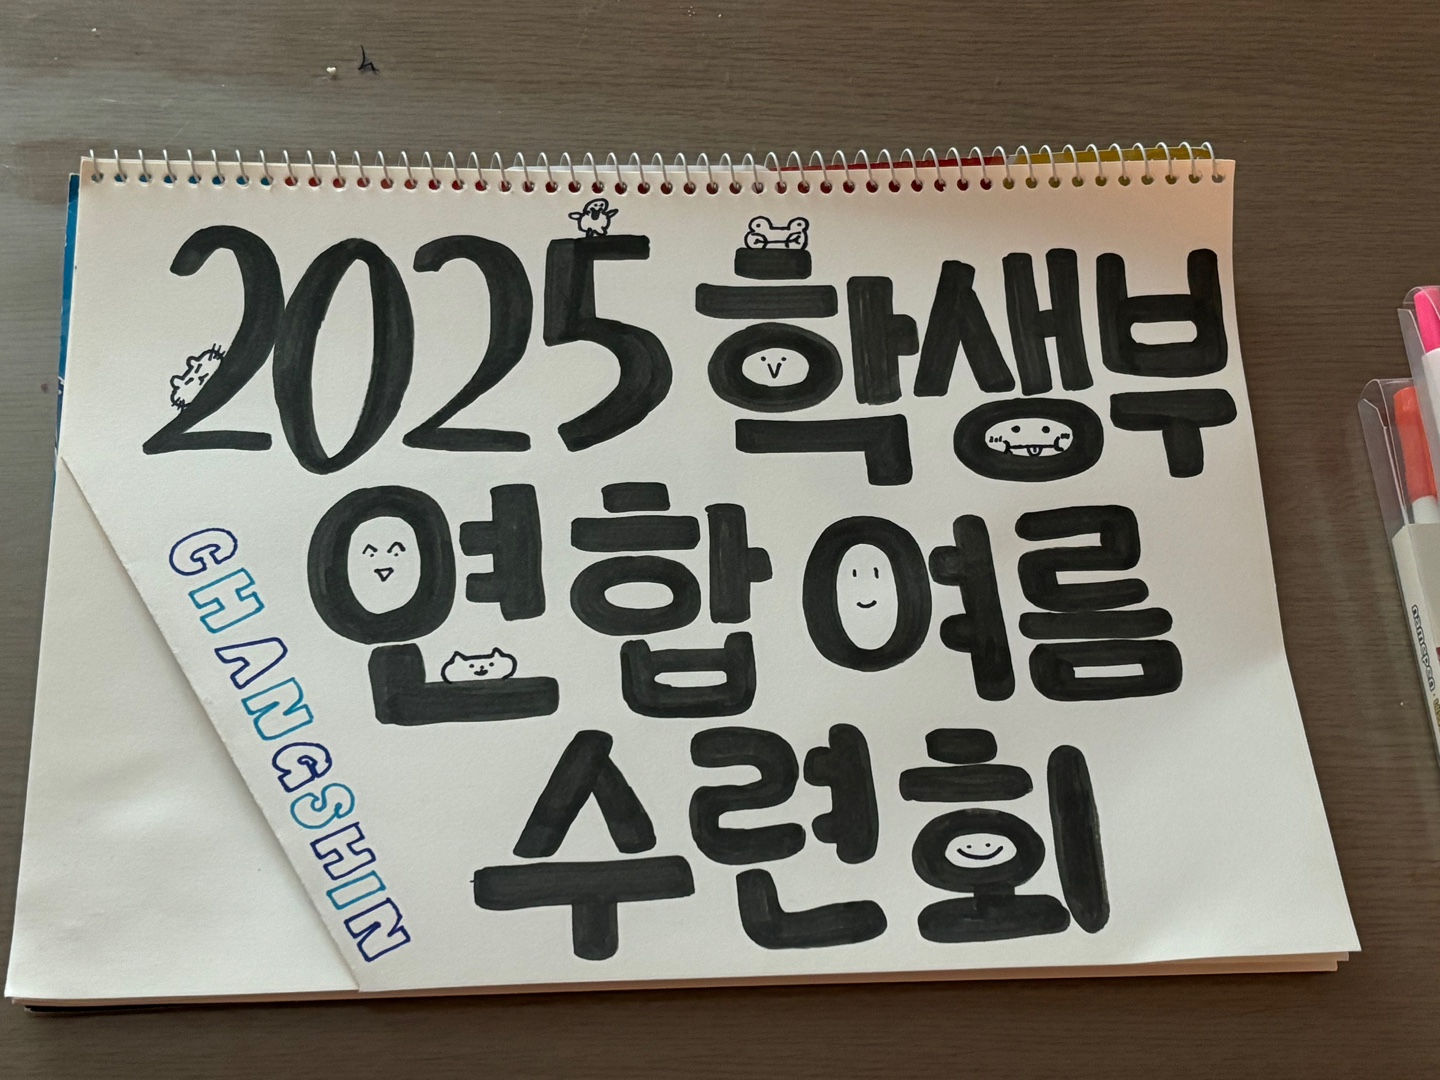 2025 학생부
연합 여름
수련회
CHANGSHIN
namepen